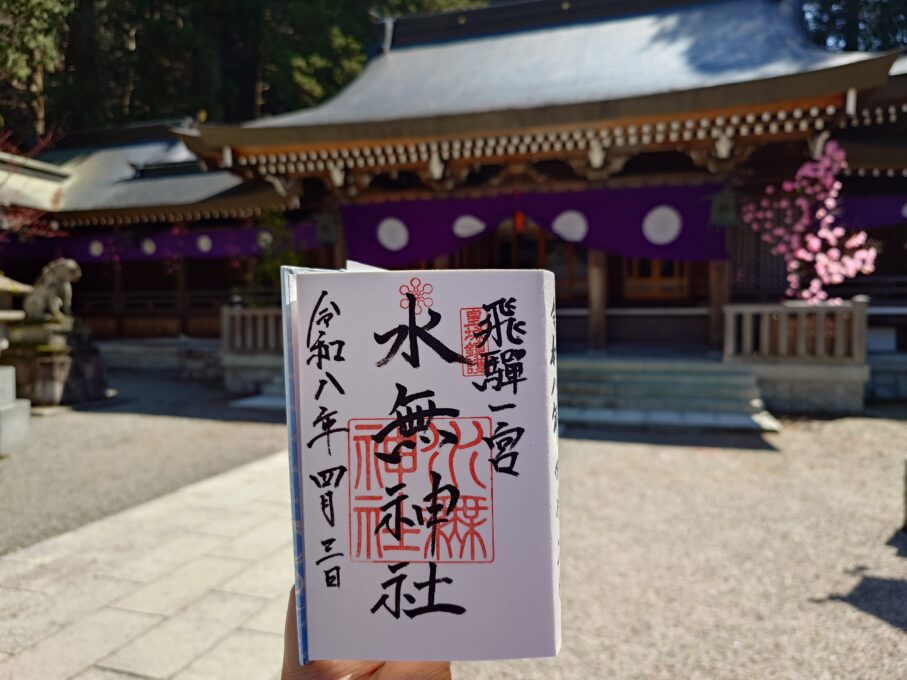 飛騨一宮
水無神社
令和八年四月三日
水無
神社